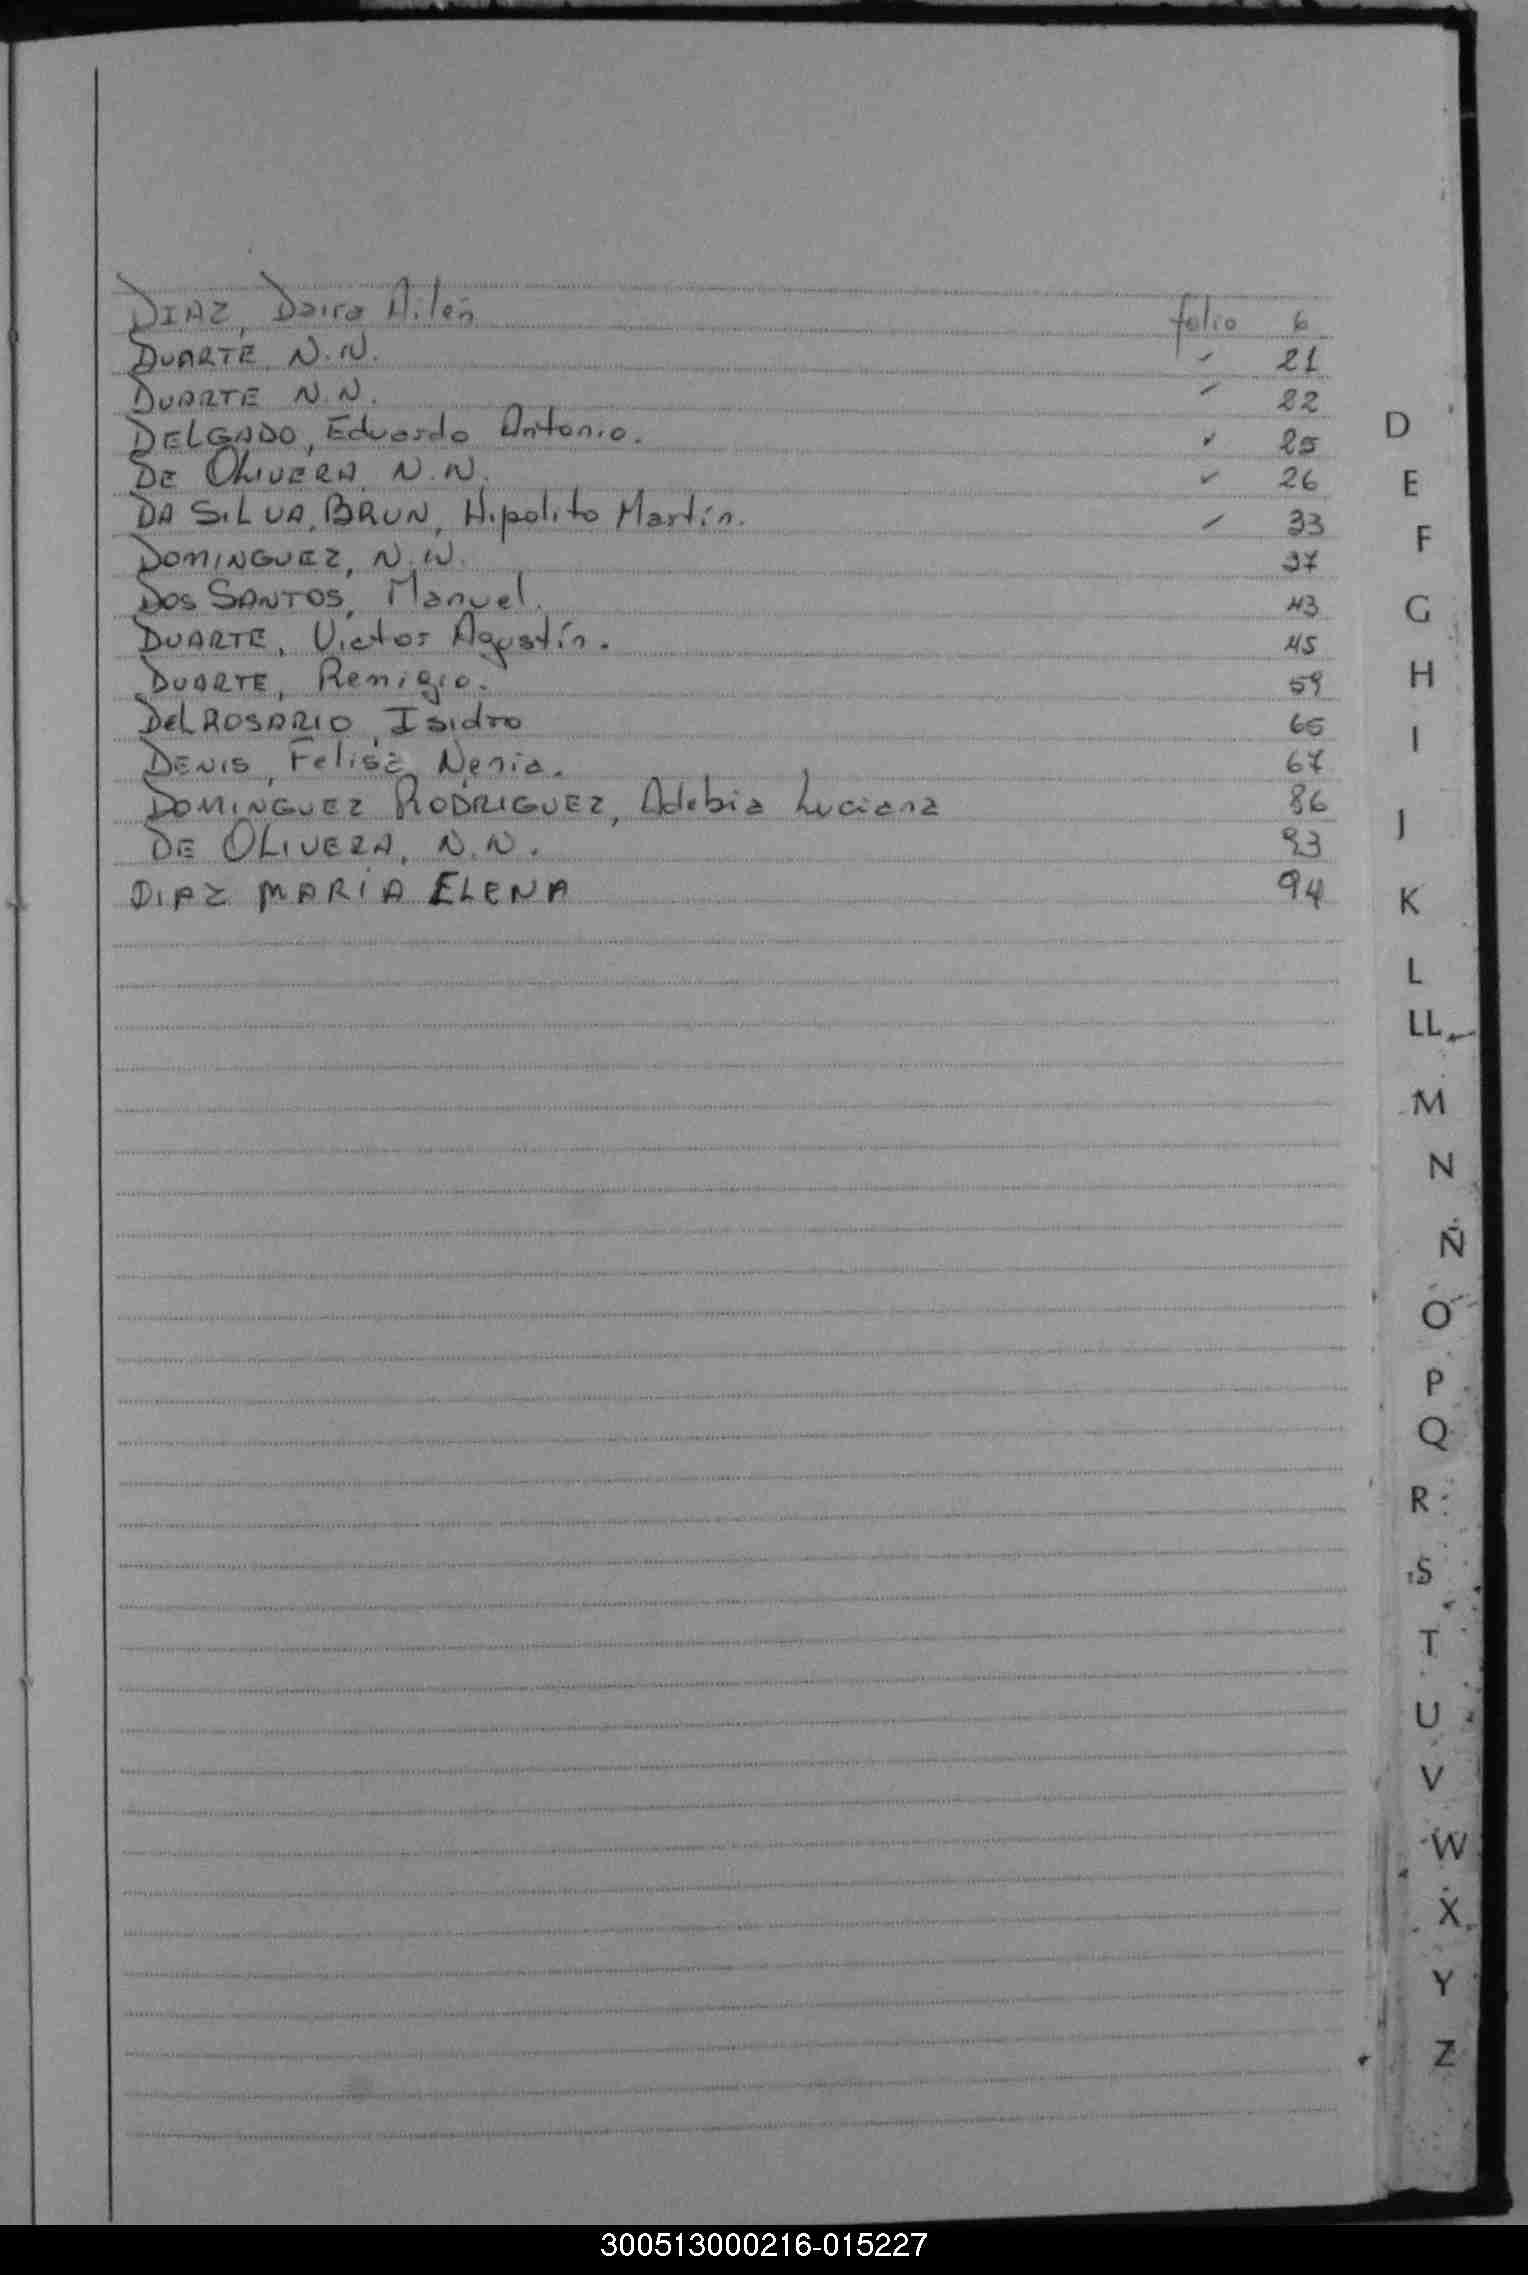 DIAZ, Daira Ailén folio 6
DUARTE, N.N. " 21
DUARTE N.N. " 22
DELGADO, Eduardo Antonio. " 25
DE OLIVERA, N.N. " 26
DA SILVA, BRUN, Hipolito Martín. " 33
DOMINGUEZ, N.N. 37
DOS SANTOS, Manuel. 43
DUARTE, Victor Agustín. 45
DUARTE, Remigio. 59
DEL ROSARIO, Isidro 65
DENIS, Felisa Nenia. 67
DOMINGUEZ RODRIGUEZ, Adebia Luciana 86
DE OLIVERA, N.N. 93
DIAZ MARIA ELENA 94
D
E
F
G
H
I
J
K
L
LL
M
N
Ñ
O
P
Q
R
S
T
U
V
W
X
Y
Z
300513000216-015227